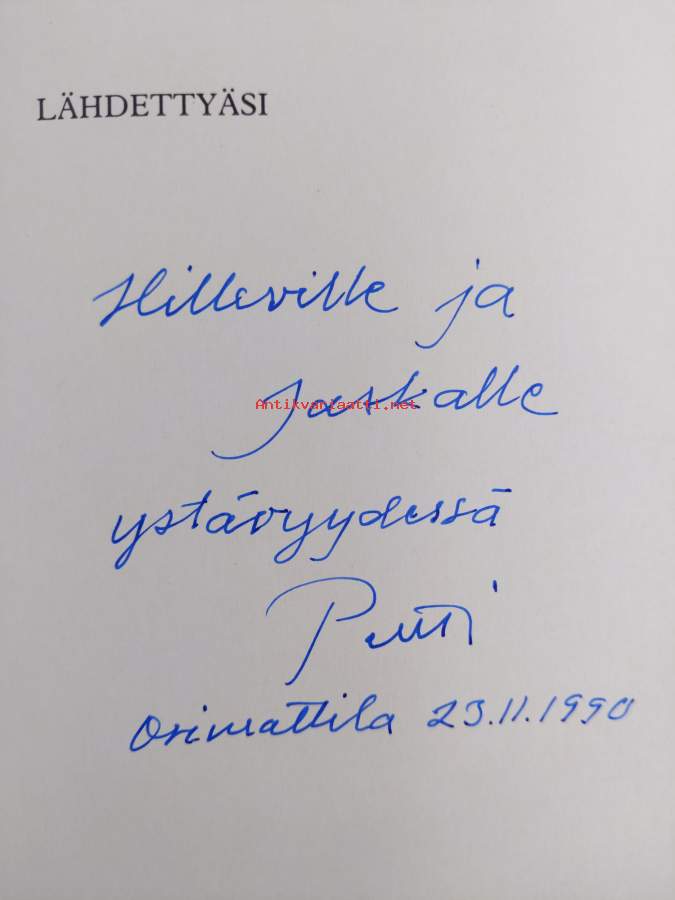 LÄHDETTYÄSI
Hilleville ja
Jaskalle
Antikvariaatti.net
ystävyydessä
Pentti
Orimattila 23.11.1990